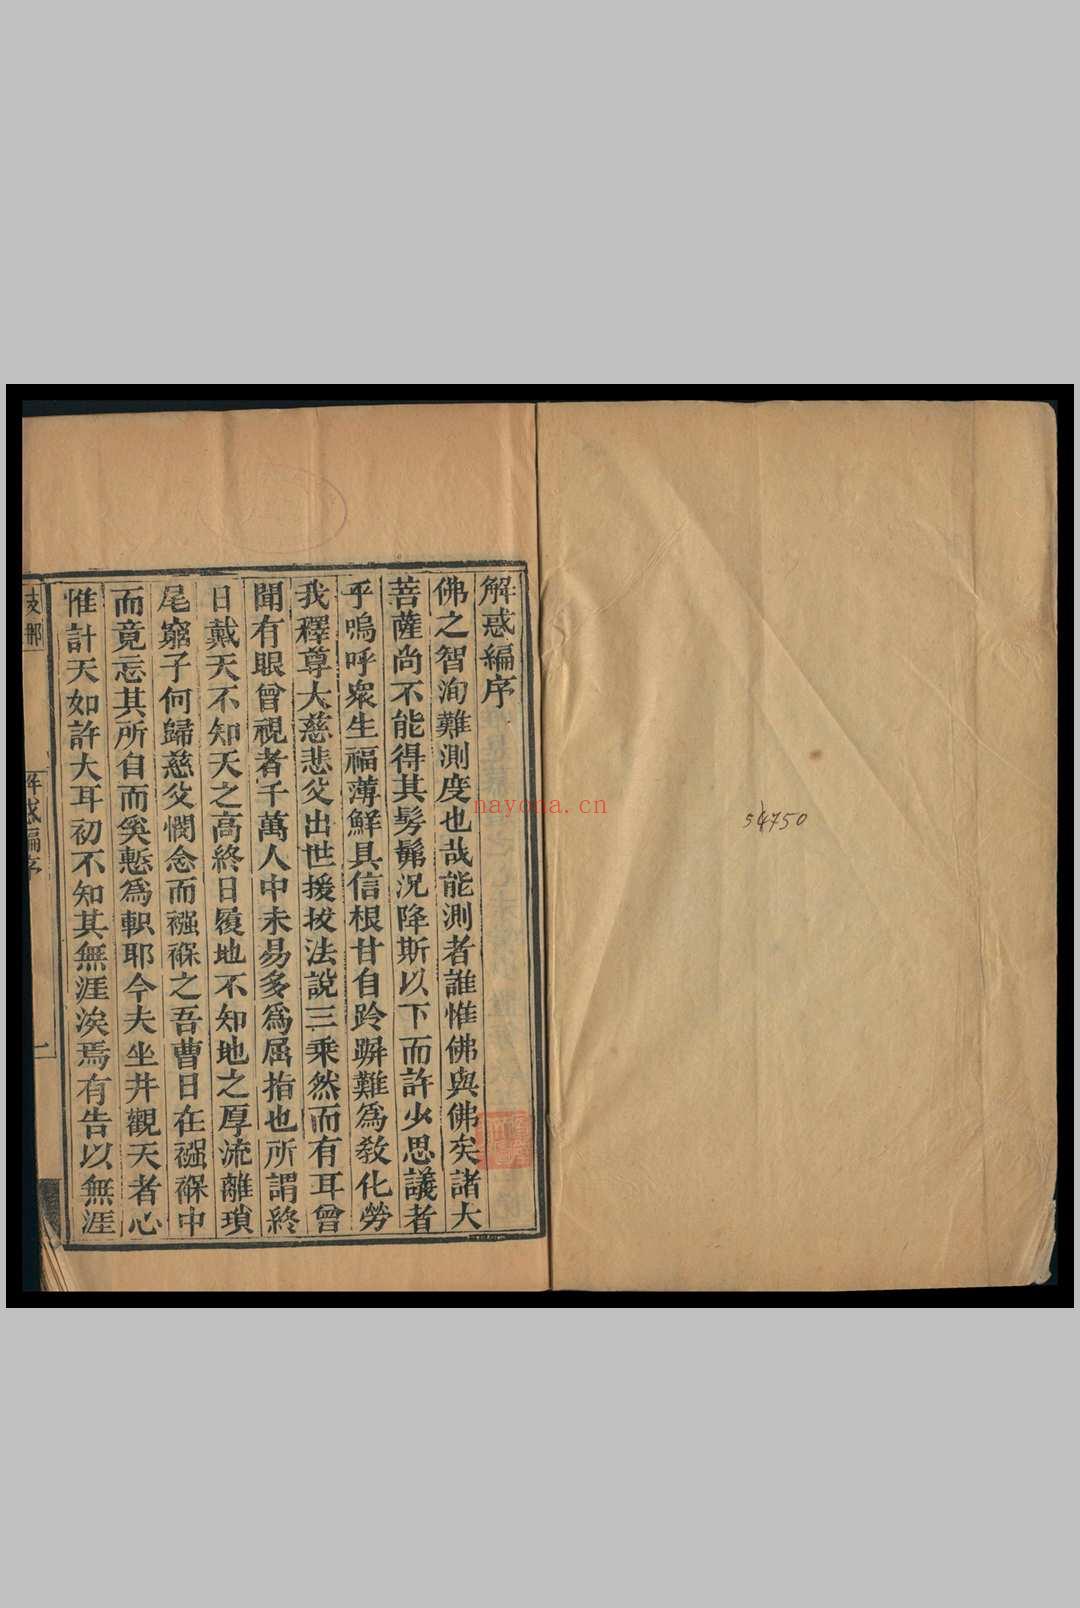 解惑編序
佛之智洵難測度也哉能測者誰惟佛與佛矣諸大
菩薩尚不能得其髣髴況降斯以下而許少思議者
乎嗚呼衆生福薄鮮具信根甘自跉跰難爲敎化勞
我釋尊大慈悲父出世援拔法說三乘然而有耳曾
聞有眼曾視者千萬人中未易多爲屈指也所謂終
日戴天不知天之高終日履地不知地之厚流離瑣
尾窮子何歸慈父憫念而襁褓之吾曹日在襁褓中
而竟忘其所自而奚慙爲軹耶今夫坐井觀天者心
惟計天如許大耳初不知其無涯涘焉有告以無涯
支那
解惑編序
一
54750
nayona.cn